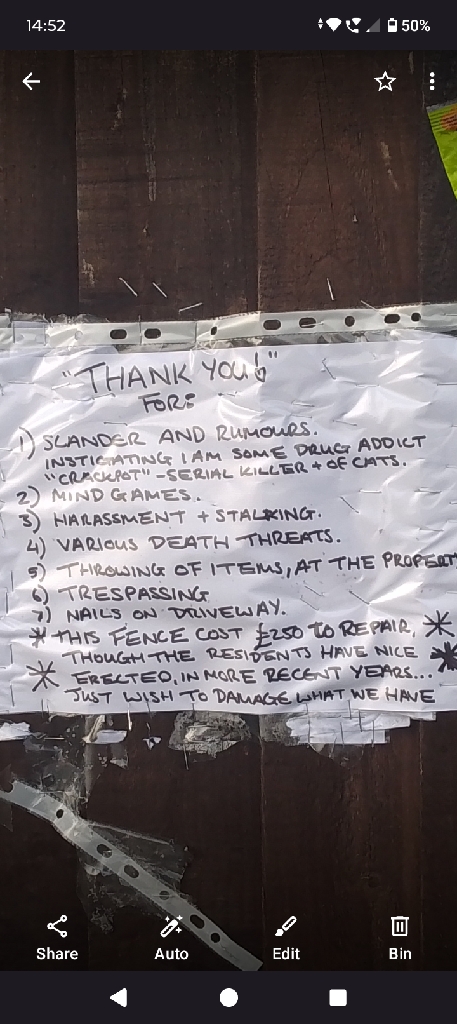 14:52
50%
"THANK YOU!"
FOR:
1) SLANDER AND RUMOURS.
INSTIGATING I AM SOME DRUG ADDICT
"CRACKPOT" - SERIAL KILLER + OF CATS.
2) MIND GAMES.
3) HARASSMENT + STALKING.
4) VARIOUS DEATH THREATS.
5) THROWING OF ITEMS, AT THE PROPERTY
6) TRESPASSING
7) NAILS ON DRIVEWAY.
* THIS FENCE COST £250 TO REPAIR, *
THOUGH THE RESIDENTS HAVE NICE *
* ERECTED, IN MORE RECENT YEARS...
JUST WISH TO DAMAGE WHAT WE HAVE
Share Auto Edit Bin